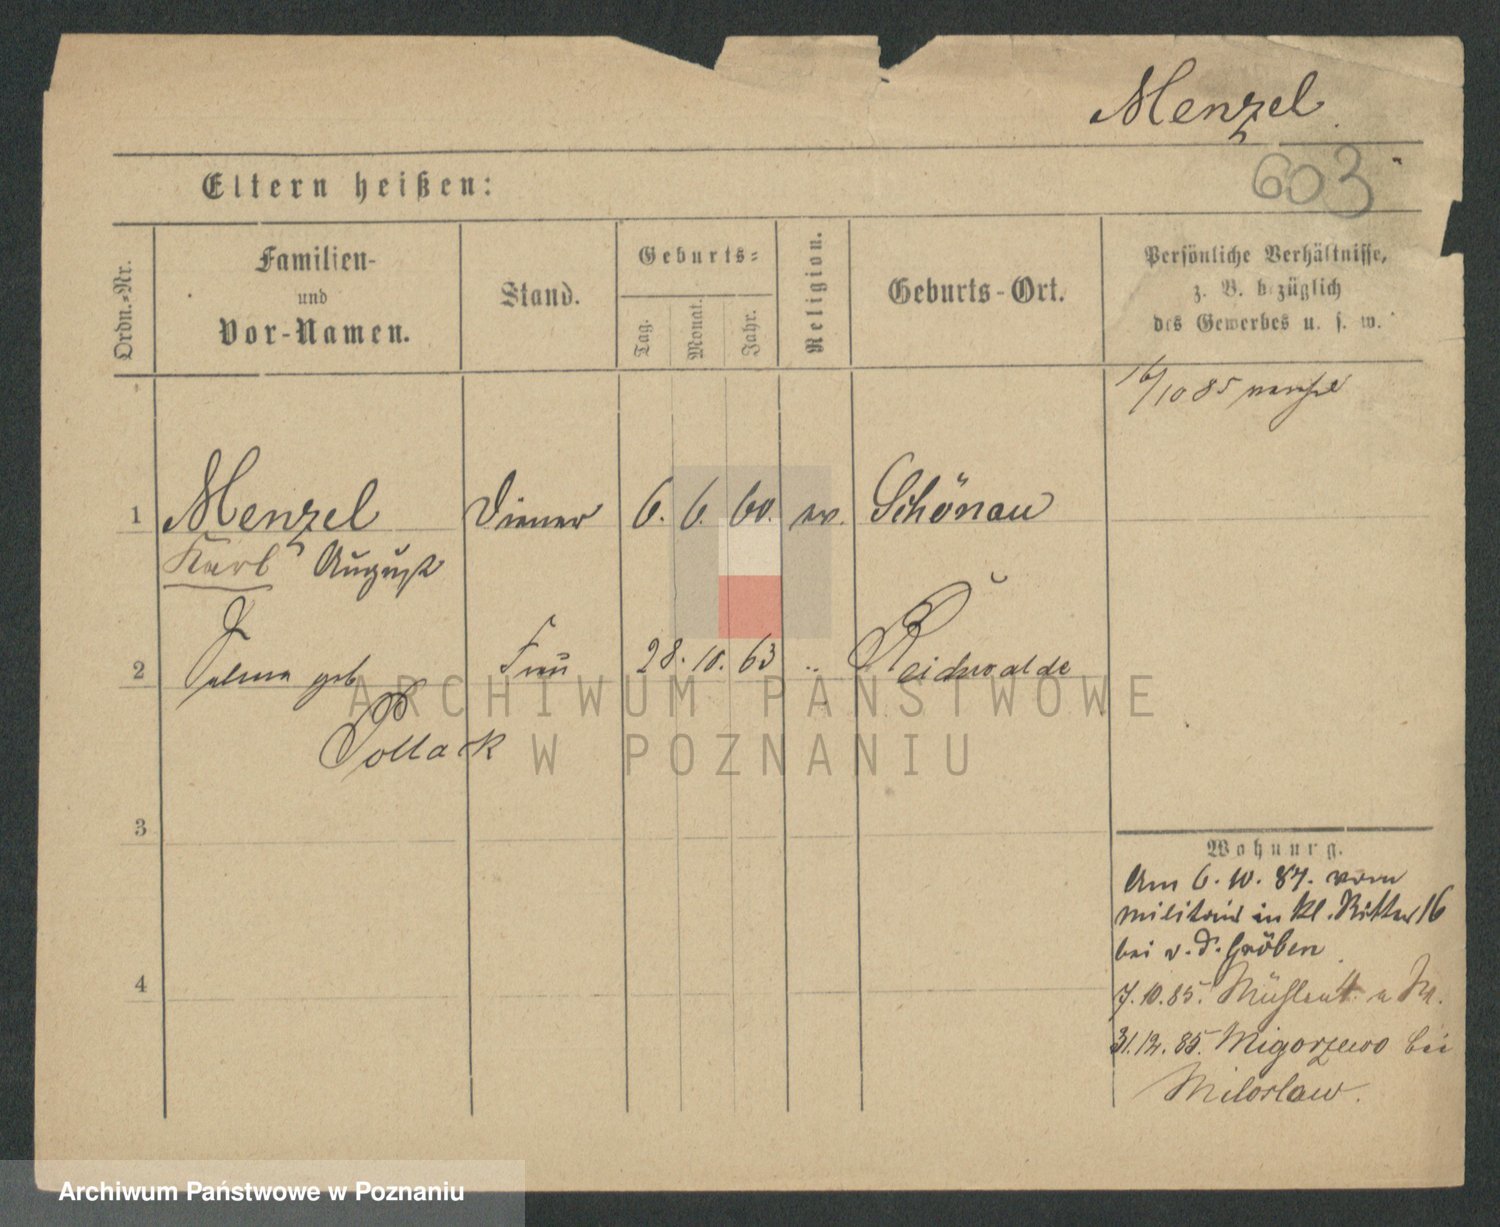 Menzel
603
Eltern heißen:
Ordn.-Nr.
Familien-
und
Vor-Namen.
Stand.
Geburts-
Tag.
Monat.
Jahr.
Religion.
Geburts-Ort.
Persönliche Verhältnisse,
z. B. bezüglich
des Gewerbes u. s. w.
16/10 85
1 Menzel Diener 6. 6. 60. ev. Schönau
Karl August
2 geb Frau 28. 10. 63 " Reichwalde
Pollack
ARCHIWUM PAŃSTWOWE
W POZNANIU
3
4
Wohnung.
Am 6. 10. 84. vom
Militair in kl. Ritter 16
bei v. d. Gröben
7. 10. 85. Mühlen 4
31. 12. 85. Migorzewo bei
Miloslaw.
Archiwum Państwowe w Poznaniu